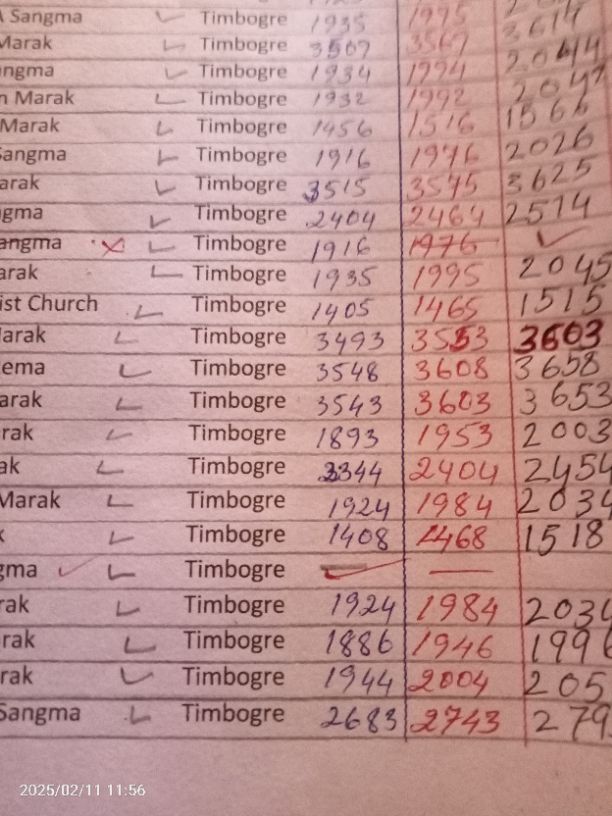 Sangma Timbogre 1935 1995
Marak Timbogre 3507 3567 3617
ngma Timbogre 1934 1994 2044
n Marak Timbogre 1932 1992 2042
Marak Timbogre 1456 1516 1566
Sangma Timbogre 1916 1976 2026
arak Timbogre 3515 3575 3625
gma Timbogre 2404 2464 2514
angma Timbogre 1916 1976
arak Timbogre 1935 1995 2045
ist Church Timbogre 1405 1465 1515
arak Timbogre 3493 3553 3603
ema Timbogre 3548 3608 3658
arak Timbogre 3543 3603 3653
rak Timbogre 1893 1953 2003
ak Timbogre 2344 2404 2454
Marak Timbogre 1924 1984 2034
k Timbogre 1408 1468 1518
gma Timbogre
rak Timbogre 1924 1984 2034
rak Timbogre 1886 1946 1996
rak Timbogre 1944 2004 205
Sangma Timbogre 2683 2743 279
2025/02/11 11:56